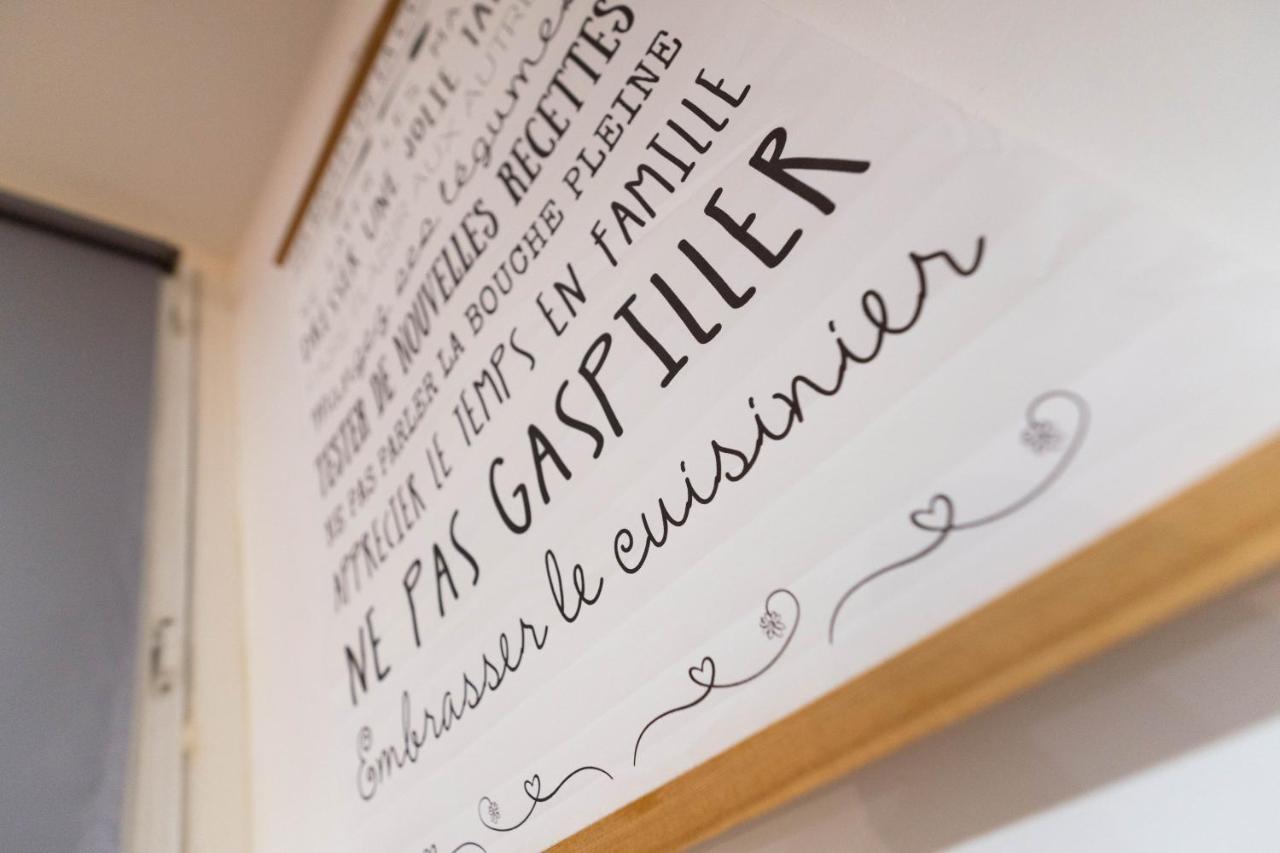 JOLIE
AUX AUTRES
légumes
TESTER DE NOUVELLES RECETTES
NE PAS PARLER LA BOUCHE PLEINE
APPRÉCIER LE TEMPS EN FAMILLE
NE PAS GASPILLER
Embrasser le cuisinier